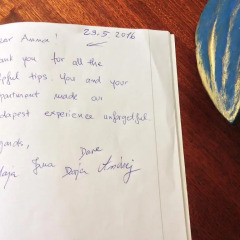 ear Anna! 29.5 2016
ank you for all the
lpful tips. You and your
partment made our
dapest experience unforgetful.
gards,
Dare
Jana Dasja Andrej